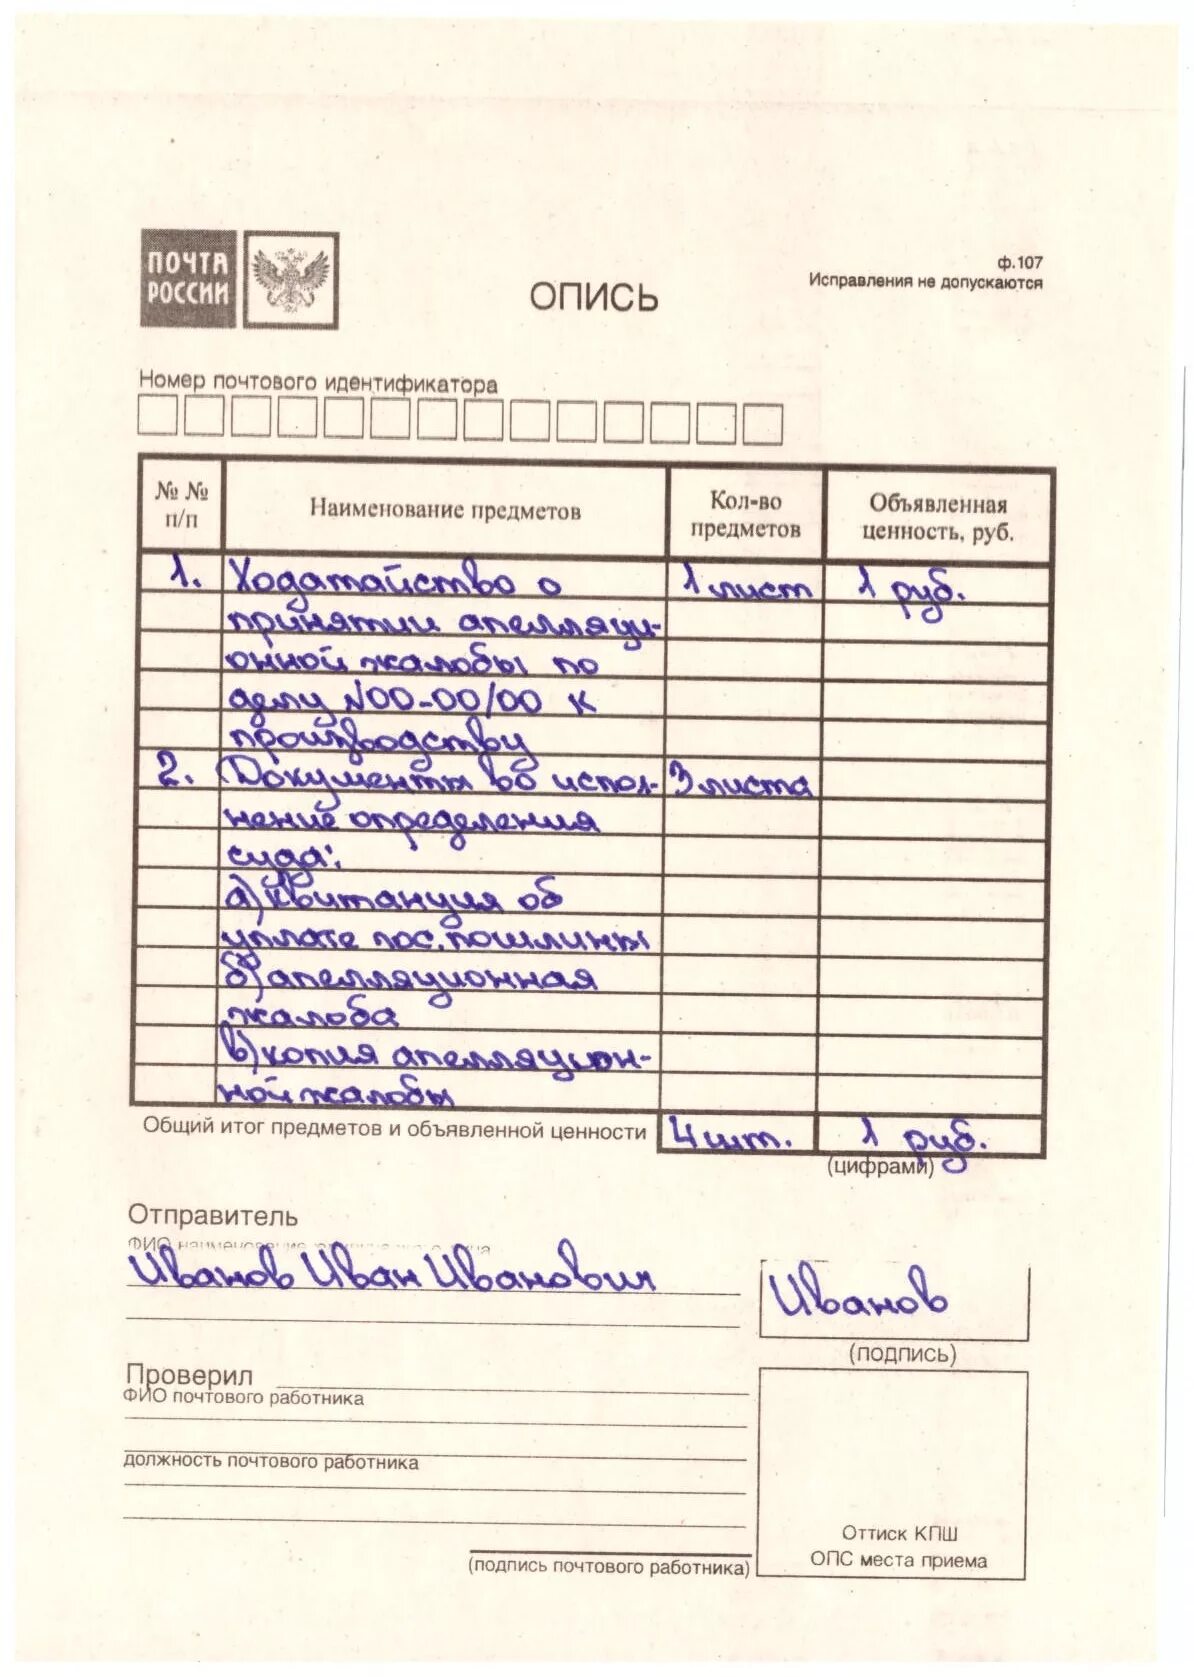 ПОЧТА
РОССИИ
ОПИСЬ
ф.107
Исправления не допускаются
Номер почтового идентификатора
№ № п/п Наименование предметов Кол-во предметов Объявленная ценность, руб.
1. Ходатайство о 1 лист 1 руб.
принятии апелляци-
онной жалобы по
делу №00-00/00 к
производству
2. Документы во испол- 3 листа
нение определения
суда:
а) квитанция об
уплате гос. пошлины
б) апелляционная
жалоба
в) копия апелляцион-
ной жалобы
Общий итог предметов и объявленной ценности 4 шт. 1 руб.
(цифрами)
Отправитель
ФИО наименование
Иванов Иван Иванович
Иванов
(подпись)
Проверил
ФИО почтового работника
должность почтового работника
(подпись почтового работника)
Оттиск КПШ
ОПС места приема